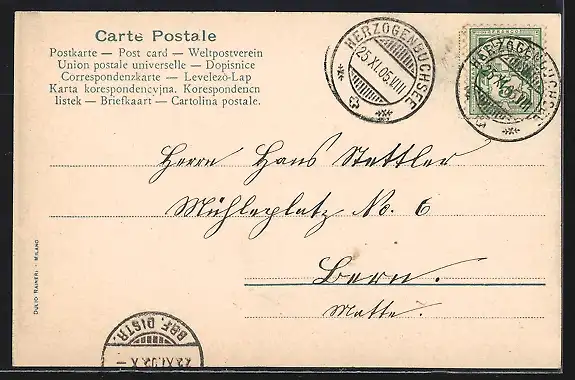 Carte Postale
Postkarte — Post card — Weltpostverein
Union postale universelle — Dopisnice
Correspondenzkarte — Levelezö-Lap
Karta korespondencyjna. Korespondencn
listek — Briefkaart — Cartolina postale.
HERZOGENBUCHSEE
25.XI.05.VIII
HERZOGENBUCHSEE
Herrn Hans Stettler
Mühleplatz No. 6
Bern.
Matte.
DULIO RAINERI - MILANO
BRF. DISTR.